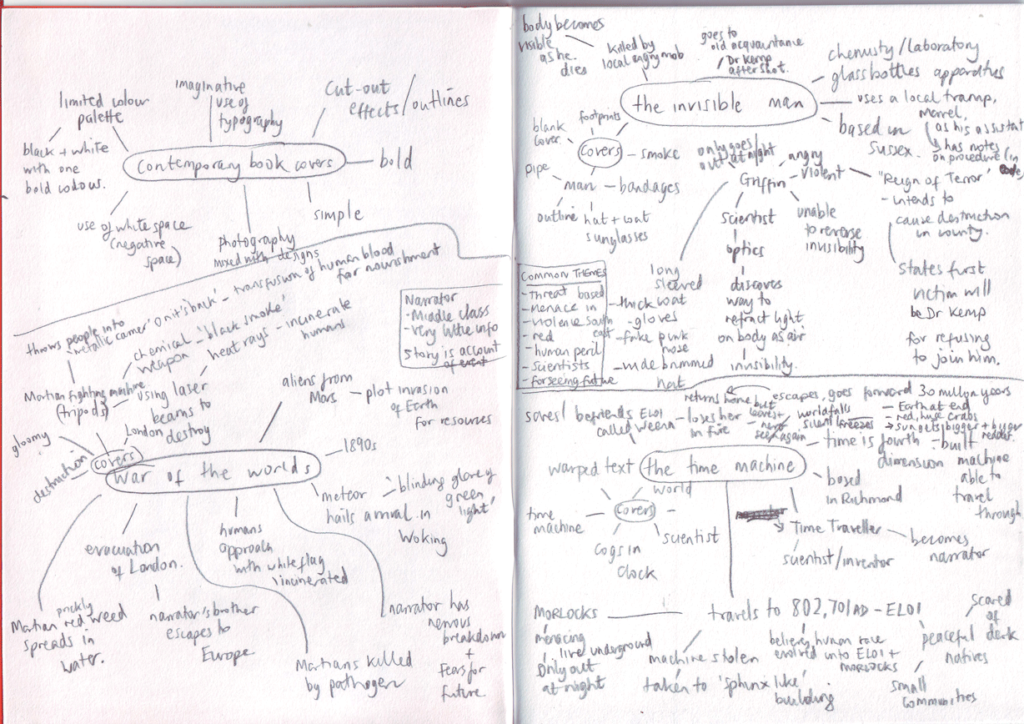 limited colour
palette
imaginative
use of
typography
cut-out
effects/outlines
black + white
with one
bold colour.
contemporary book covers
bold
use of white space
(negative
space)
photography
mixed with designs
simple
throws people into
'metallic carrier' on its 'back' - transfusion of human blood
for nourishment
chemical - 'black smoke'
weapon
heat rays - incinerate
humans
Narrator
- Middle class
- Very little info
Story is account
of event
Martian fighting machine
(tripods)
using laser
beams to
destroy
aliens from
Mars
plot invasion
of Earth
for resources
gloomy
destruction
London
covers
war of the worlds
1890s
meteor
hails arrival in
Woking
blinding glare of
green
light
evacuation
of London.
humans
approach
with white flag
incinerated
prickly
Martian red weed
spreads in
water.
narrator's brother
escapes to
Europe
Martians killed
by pathogen
narrator has
nervous
breakdown
+
fears for
future.
body becomes
visible
as he
dies
killed by
local angry mob
goes to
old acquaintance
Dr Kemp
after shot.
chemistry/laboratory
glass bottles apparatus
the invisible man
uses a local tramp,
Marvel,
as his assistant
has notes
on procedure (in
based in
Sussex.
footprints
blank
cover
covers
smoke
pipe
man - bandages
outline
hat + coat
sunglasses
only goes
out at night
Griffin
angry
violent
"Reign of Terror"
- intends to
cause destruction
in county.
scientist
optics
discovers
way to
refract light
on body as air
invisibility.
unable
to reverse
invisibility
states first
victim will
be Dr Kemp
for refusing
to join him.
long
sleeved
- thick coat
- gloves
- fake pink
nose
- wide brimmed
hat
COMMON THEMES
- threat based
- menace in
- violence south
east
- red
- human peril
- scientists
- forseeing future
saves/befriends ELOI
called Weena
loses her
in fire
returns home but
leaves +
never
seen again
escapes, goes forward 30 million years
- Earth at end
- red, huge crabs
- sun gets bigger + bigger
redder.
world falls
silent freezes
time is fourth
dimension
built
machine
able to
travel
through
warped text
the time machine
world
covers
time
machine
cogs in
clock
scientist
based
in Richmond
Time Traveller
scientist/inventor
becomes
narrator
MORLOCKS
menacing
live underground
only out
at night
travels to 802,701 AD - ELOI
machine stolen
taken to 'sphinx like'
building
believes human race
evolved into ELOI +
MORLOCKS
peaceful
natives
scared
of
dark
small
communities